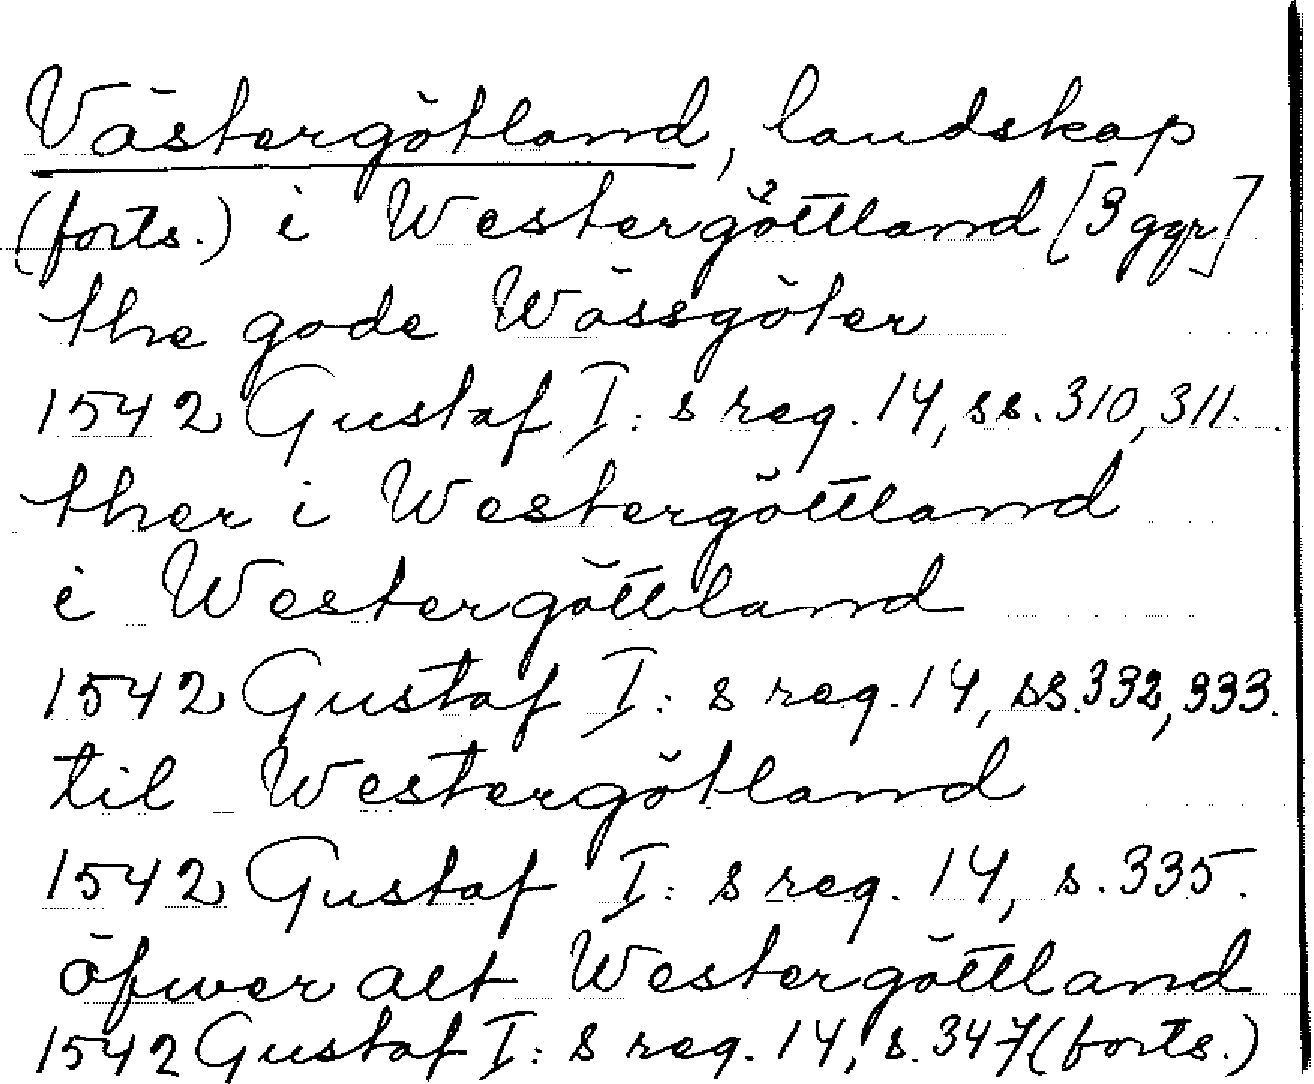 Västergötland, landskap
(forts.) i Westergöttland [3 ggr]
the gode Wässgöter
1542 Gustaf I:s reg. 14, ss. 310, 311.
ther i Westergöttland
i Westergöttland
1542 Gustaf I:s reg. 14, ss. 332, 333.
til Westergötland
1542 Gustaf I:s reg. 14, s. 335.
öfwer alt Westergöttland
1542 Gustaf I:s reg. 14, s. 347 (forts.)